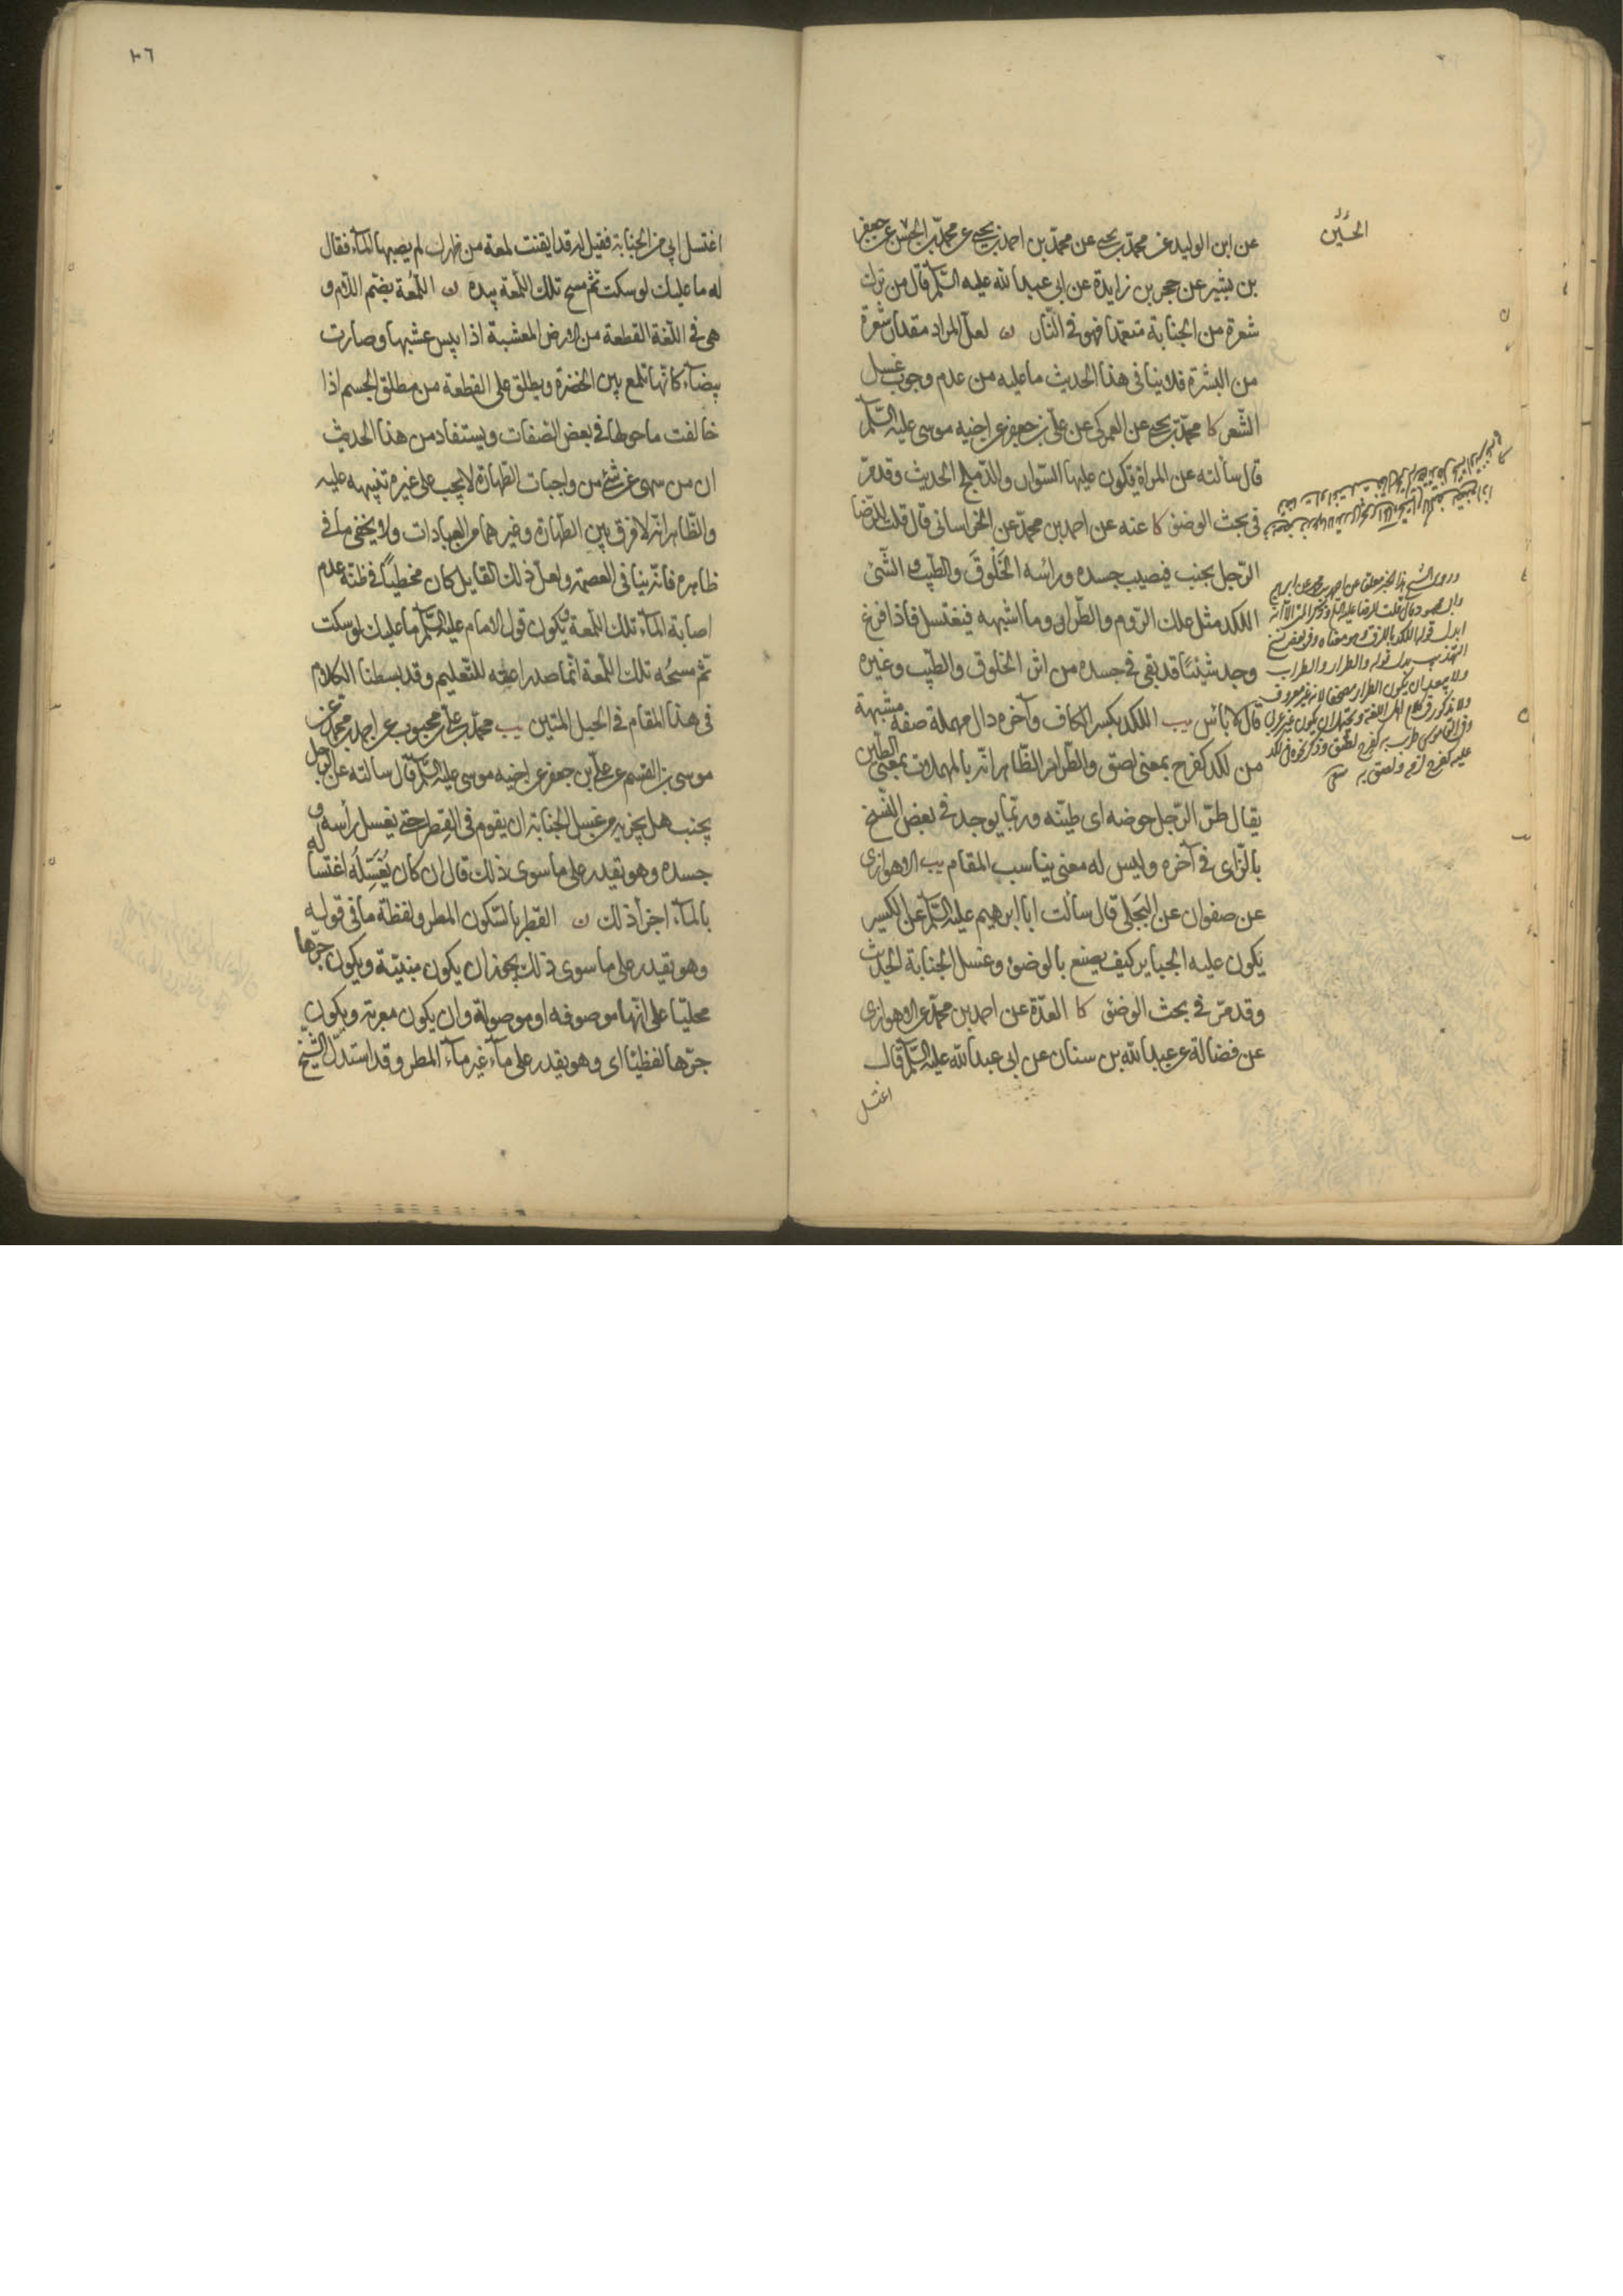 الحسين
عن ابن الوليد عن محمد بن يحيى عن محمد بن احمد بن يحيى عن محمد بن الحسن عن جعفر
بن بشير عن حجر بن زايدة عن ابى عبد الله عليه السلم قال من ترك
شعرة من الجنابة متعمدا فهو فى النار ن لعل المراد مقدار شعرة
من البشرة فلا ينافى هذا الحديث ما عليه من عدم وجوب غسل
الشعر كا محمد بن يحيى عن العمركى عن على بن جعفر عن اخيه موسى عليه السلم
قال سألته عن المراة يكون عليها السوار والدملج الحديث وقد مر
فى بحث الوضؤ كا عنه عن احمد بن محمد عن الخراسانى قال قلت للرضا
الرجل يجنب فيصيب جسده ورأسه الخَلُوقَ والطيب والشئ
اللكد مثل علك الروم والطرار وما اشبهه فيغتسل فاذا فرغ
وجد شيئًا قد بقى فى جسده من اثر الخلوق والطيب وغيره
قال لا بأس يب اللكد بكسر الكاف وآخره دال مهملة صفة مشبهة
من لكد كفرح بمعنى لصق والطرار الظاهر انه بالمهملات بمعنى الطين
يقال طرّ الرجل حوضه اى طينه وربما يوجد فى بعض النسخ
بالزاى فى آخره وليس له معنى يناسب المقام يب الاهوازى
عن صفوان عن البجلى قال سألت ابا ابرهيم عليه السلم عن الكسير
يكون عليه الجباير كيف يصنع بالوضؤ وغسل الجنابة الحديث
وقد مر فى بحث الوضؤ كا العدة عن احمد بن محمد عن الاهوازى
عن فضالة عن عبد الله بن سنان عن ابى عبد الله عليه السلم قال
اغتسل
وروى الشيخ هذا الخبر معلقا عن احمد بن محمد عن ابراهيم
بن ابى محمود قال قلت للرضا عليه السلم وذكر المتن الا انه
ابدل قوله اللكد باللزق وهو معناه وفى بعض نسخ
التهذيب بدل قوله والطرار والطراب
ولا يبعد ان يكون الطرار مصحفا لانه غير معروف
ولا مذكور فى كلام اهل اللغة ويحتمل ان يكون غير عربى
وفى القاموس طرب به كفرح لصق وذكر نحوه فى لكد
عليه كفرح لزمه ولصق به
٣٦
اغتسل ابى من الجنابة فقيل له قد ابقيت لمعة من ظهرك لم يصبها الماء فقال
له ما عليك لو سكت ثم مسح تلك اللمعة بيده ن اللُمعة بضم اللام و
هى فى اللغة القطعة من الارض المعشبة اذا يبس عشبها وصارت
بيضاء كانها تلمع بين الخضرة ويطلق على القطعة من مطلق الجسم اذا
خالفت ما حولها فى بعض الصفات ويستفاد من هذا الحديث
ان من سهى عن شئ من واجبات الطهارة لا يجب على غيره تنبيهه عليه
والظاهر انه لا فرق بين الطهارة وغيرها من العبادات ولا يخفى ما فى
ظاهره فانه ينافى العصمة ولعل ذلك القايل كان مخطيًا فى ظنه عدم
اصابة الماء تلك اللمعة ويكون قول الامام عليه السلم ما عليك لو سكت
ثم مسحُه تلك اللمعة انما صدرا عنه للتعليم وقد بسطنا الكلام
فى هذا المقام فى الحبل المتين يب محمد بن على بن محبوب عن احمد بن محمد عن
موسى بن القسم عن على بن جعفر عن اخيه موسى عليه السلم قال سالته عن الرجل
يجنب هل يجزيه من غسل الجنابة ان يقوم فى القطر حتى يغسل رأسه و
جسده وهو يقدر على ما سوى ذلك قال ان كان يُغَسِّلُه اغتساله
بالماء اجزأ ذلك ن القطر بالسكون المطر ولفظة ما فى قوله
وهو يقدر على ما سوى ذلك يجوز ان يكون مبنية ويكون جرها
محليا على انها موصوفه او موصولة وان يكون معربة ويكون
جرها لفظيا اى وهو يقدر على ماء غير ماء المطر وقد استدل الشيخ